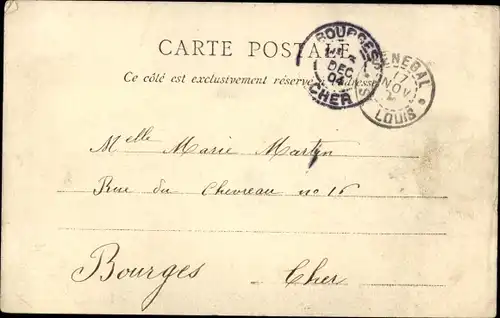 CARTE POSTALE
Ce côté est exclusivement réservé à l'adresse
BOURGES
DEC
04
CHER
SÉNÉGAL
17
NOV
ST LOUIS
Melle Marie Martin
Rue du Chevreau no 16
Bourges Cher